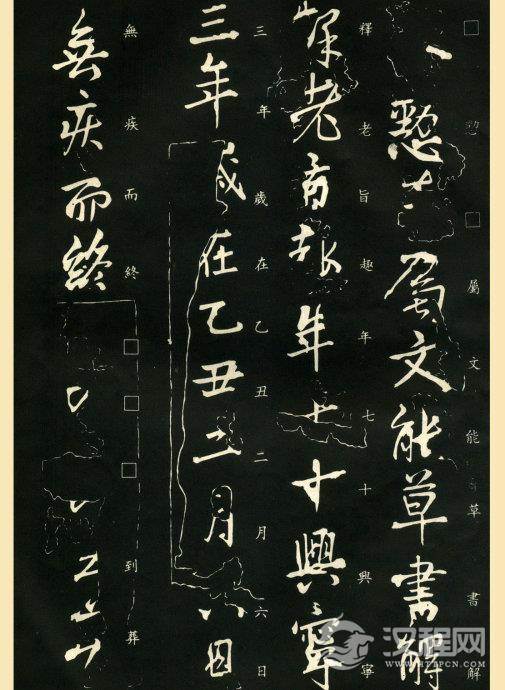 □愍□屬文能草書解
愍屬文能草書解
釋老旨趣年七十興寧
釋老旨趣年七十興寧
三年歲在乙丑二月六日
三年歲在乙丑二月六日
無疾而終□□□到葬
無疾而終
汉程网
HTTPCN.COM